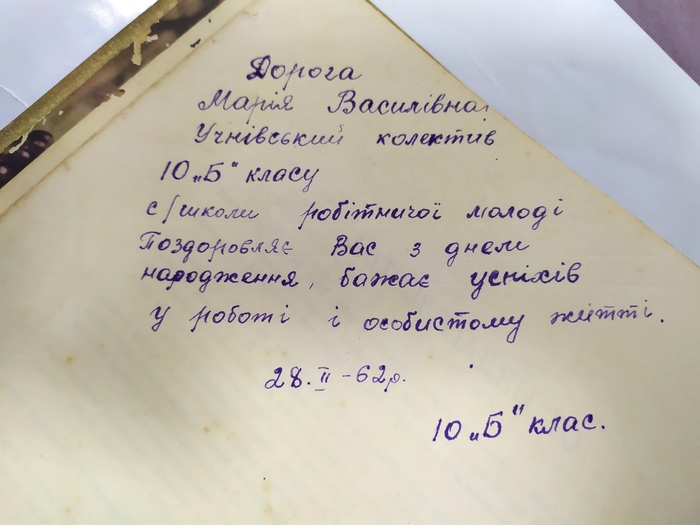 Дорога
Марія Василівна!
Учнівський колектив
10 „Б" класу
с/школи робітничої молоді
Поздоровляє Вас з днем
народження, бажає успіхів
у роботі і особистому житті.
28. II – 62 р.
10 „Б" клас.